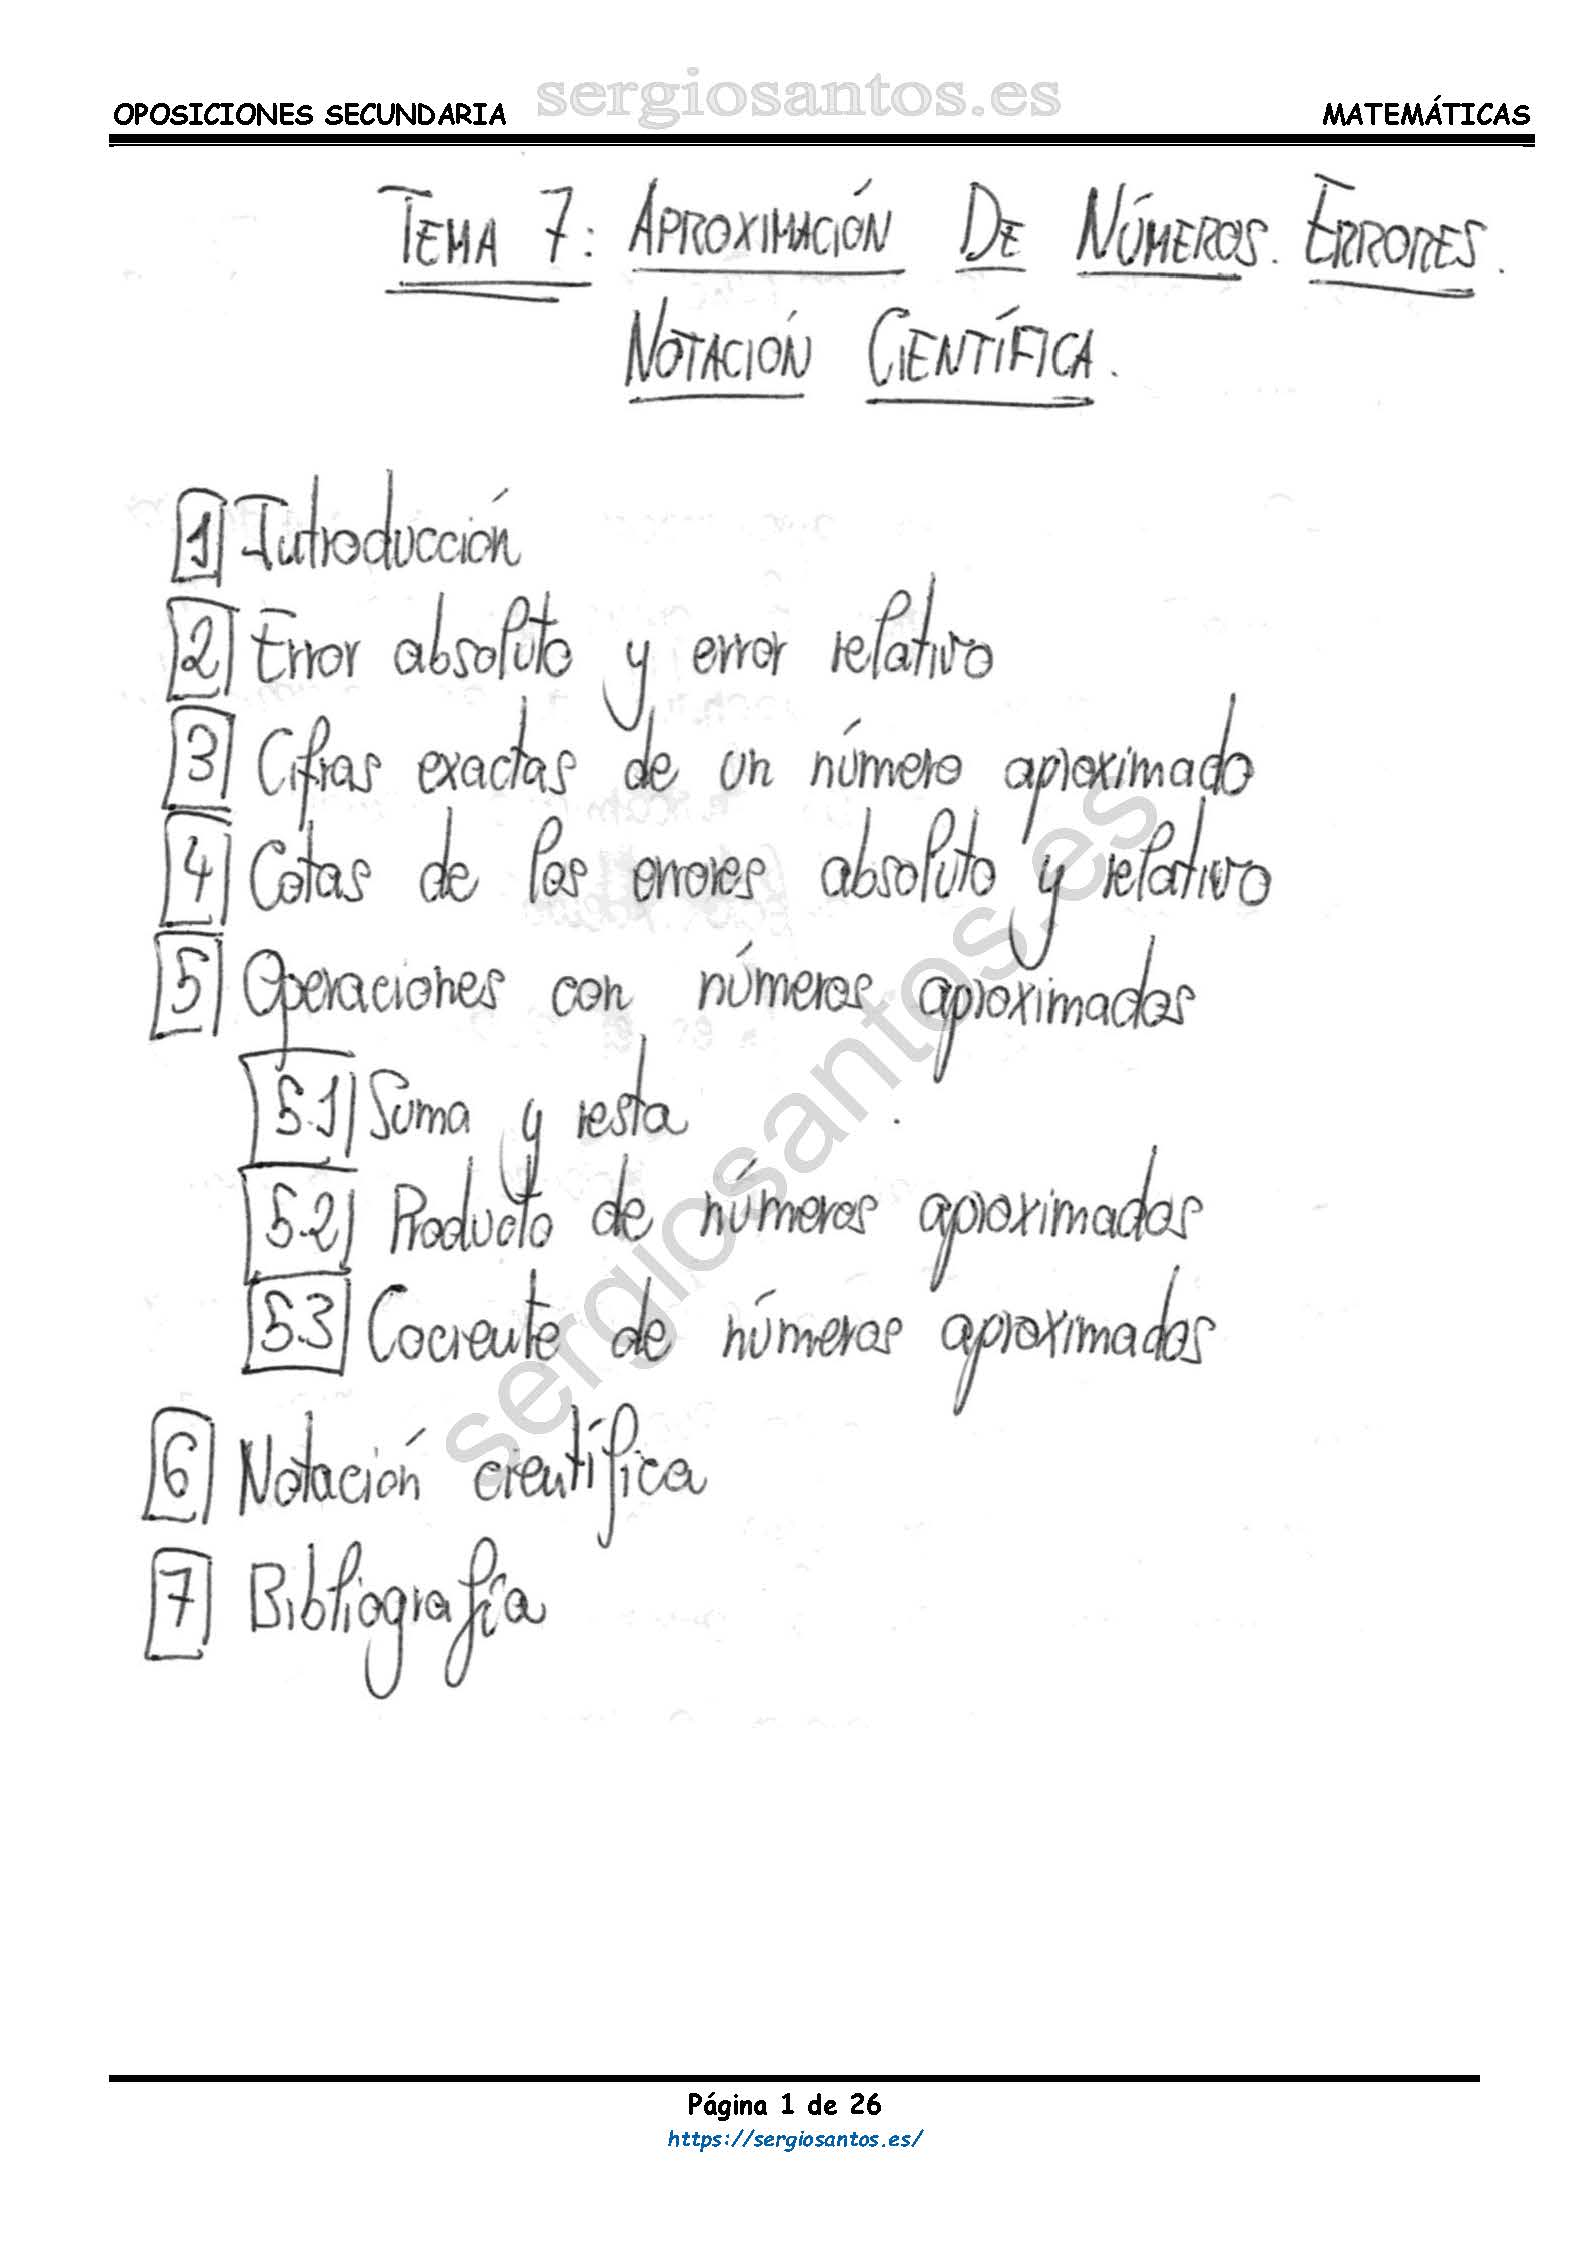 sergiosantos.es
OPOSICIONES SECUNDARIA MATEMÁTICAS
TEMA 7: APROXIMACIÓN DE NÚMEROS. ERRORES.
NOTACIÓN CIENTÍFICA.
1 Introducción
2 Error absoluto y error relativo
3 Cifras exactas de un número aproximado
4 Cotas de los errores absoluto y relativo
5 Operaciones con números aproximados
5.1 Suma y resta
5.2 Producto de números aproximados
5.3 Cociente de números aproximados
6 Notación científica
7 Bibliografía
sergiosantos.es
Página 1 de 26
https://sergiosantos.es/